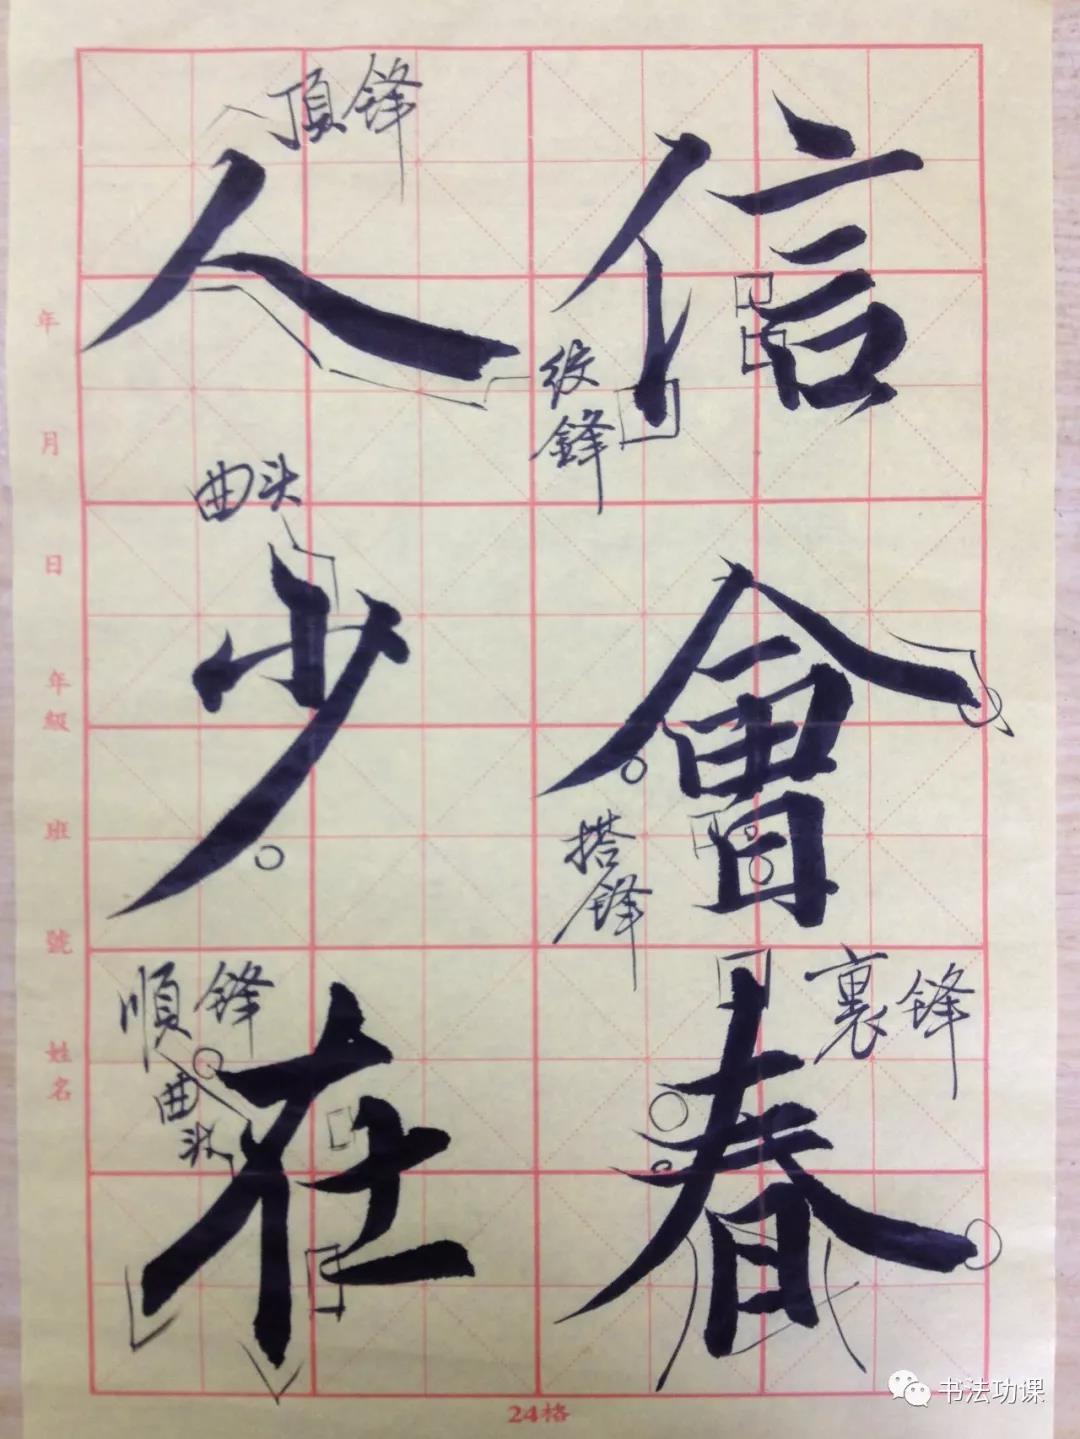 信
會
春
绞鋒
搭锋
裹锋
人
少
在
頂锋
曲头
順锋
曲头
年 月 日 年級 班 號 姓名
24格
书法功课